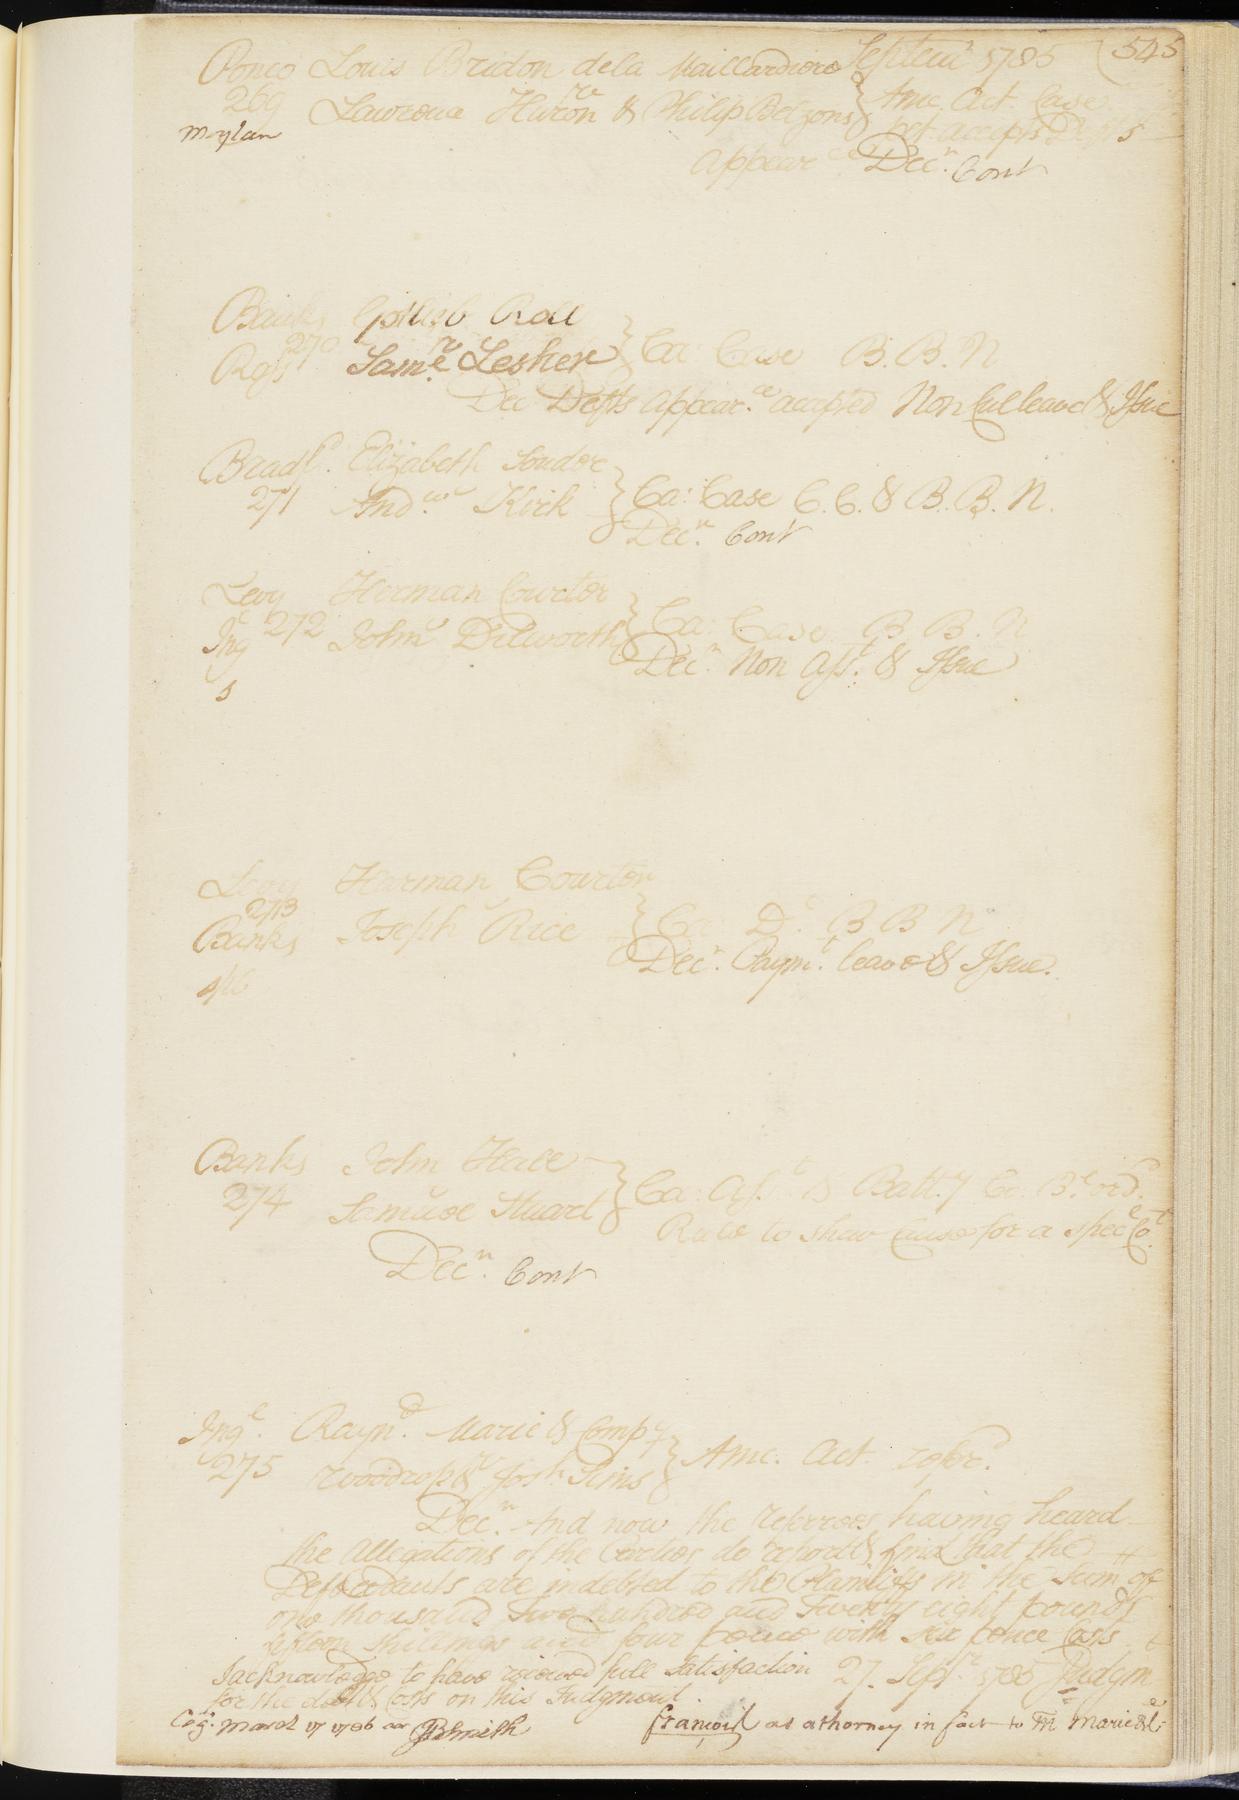 Ponco Louis Bridon dela Maillardiere Septem 1785 (545
269 Lawrence Huron & Philip Belzons } Amc. Act. Case
Mylan bef. accepts Defts
Appear ce Decn. Cont
Banks Gotlieb Roll
270 Samle Lesher } Ca: Case B. B. N
Dec Defts Appear.ce accepted Non Cul leave & Issue
Bradfd. Elizabeth Souder
271 Andw. Kirk } Ca: Case C. C. & B. B. N.
Decn. Cont
Levy Herman Courter
Inge 272 John Dilworth } Ca: Case B. B. N
Decn. Non Asst. & Issue
s
Levy Harman Courter
273 Joseph Rice } Ca Do B B N
Banks Decn. Paymt. leave & Issue.
Banks John Hall
274 Samuel Stuart } Ca: Asst. & Batty
Rule to shew Cause for a Special Ct.
Decn. Cont
Inge. Raynd. Marie & Compy
275 Woodrop & Josh Sims } Amc. Act. referd.
Decn. And now the Referrees having heard
the Allegations of the Parties do report & find that the
Defendants are indebted to the Plaintiffs in the Sum of
one thousand two hundred and twenty eight pounds
fifteen shillings and four pence with six pence Costs
I acknowledge to have received full Satisfaction 27. Septr. 1785 Judgm
for the debt & Costs on this Judgment.
March 17 1786 JBSmith as athorney in fact to M Marie &